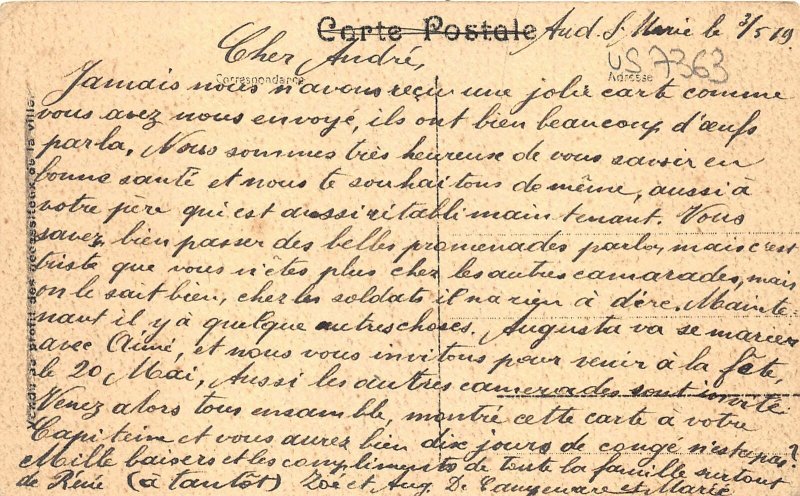 Carte Postale Aud. S. Marie le 3/5 19
Cher André,
US 7363
Correspondance
Adresse
Jamais nous n'avons reçu une jolie carte comme
vous avez nous envoyé, ils ont bien beaucoup d'œufs
parla. Nous sommes très heureuse de vous savoir en
bonne santé et nous te souhaitons de même, aussi à
votre père qui est aussi rétabli maintenant. Vous
savez bien passer des belles promenades parla, mais c'est
triste que vous n'êtes plus chez les autres camarades, mais
on le sait bien, chez les soldats il na rien à dére. Mainte-
nant il, y à quelque autres choses. Augusta va se marier
avec Aimé, et nous vous invitons pour venir à la fête,
le 20 Mai, Aussi les autres camerades sont invité
Venez alors tous ensamble, montré cette carte à votre
Capiteine et vous aurez bien dix jours de congé n'est pas?
Mille baisers et les compliments de toute la famille surtout
de René (à tantôt) Zoé et Aug. D. et Marie
Vendu au profit des nécessiteux de la ville